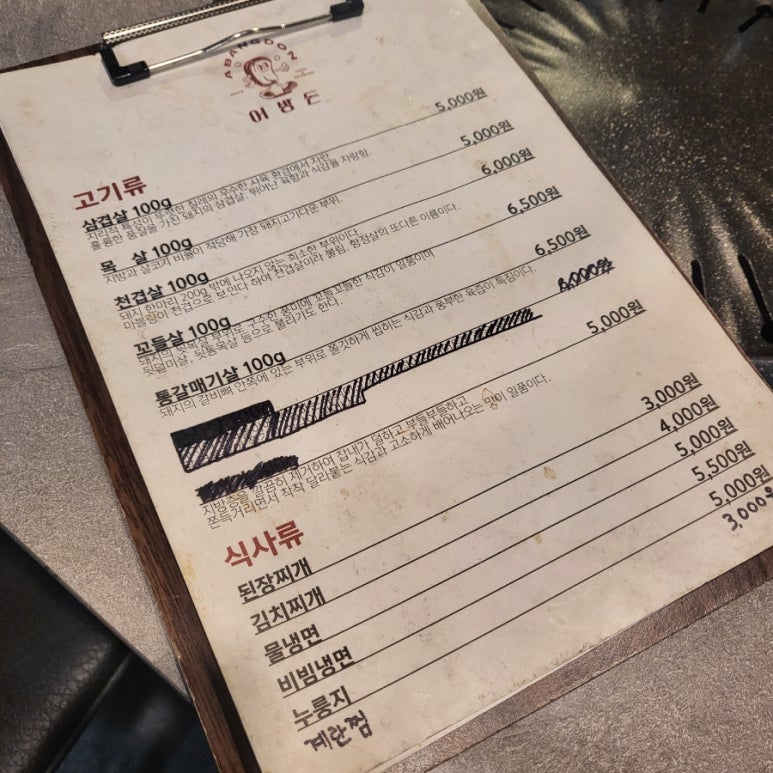 ABANGDON
고기류
삼겹살 100g 5,000원
지리적 특성이 뚜렷한 칠레의 우수한 사육 환경에서 자란
훌륭한 품질을 가진 돼지의 삼겹살. 뛰어난 육향과 식감을 자랑함.
목 살 100g 5,000원
지방과 살코기 비율이 적당해 가장 돼지고기다운 부위.
천겹살 100g 6,000원
돼지 한마리 200g 밖에 나오지 않는 희소한 부위이다.
마블링이 천겹으로 보인다 하여 천겹살이라 불림. 항정살의 또다른 이름이다.
꼬들살 100g 6,500원
돼지의 뒷목살 부위로 구수한 풍미에 꼬들꼬들한 식감이 일품이며
뒷덜미살, 뒷통목살 등으로 불리기도 한다.
통갈매기살 100g 6,500원
돼지의 갈비뼈 안쪽에 있는 부위로 쫄깃하게 씹히는 식감과 풍부한 육즙이 특징이다.
5,000원
지방층을 깔끔히 제거하여 잡내가 덜하고 부들부들하고
쫀득거리면서 착착 달라붙는 식감과 고소하게 배어나오는 맛이 일품이다.
식사류
된장찌개 3,000원
김치찌개 4,000원
물냉면 5,000원
비빔냉면 5,500원
누룽지 5,000원
계란찜 3,000원